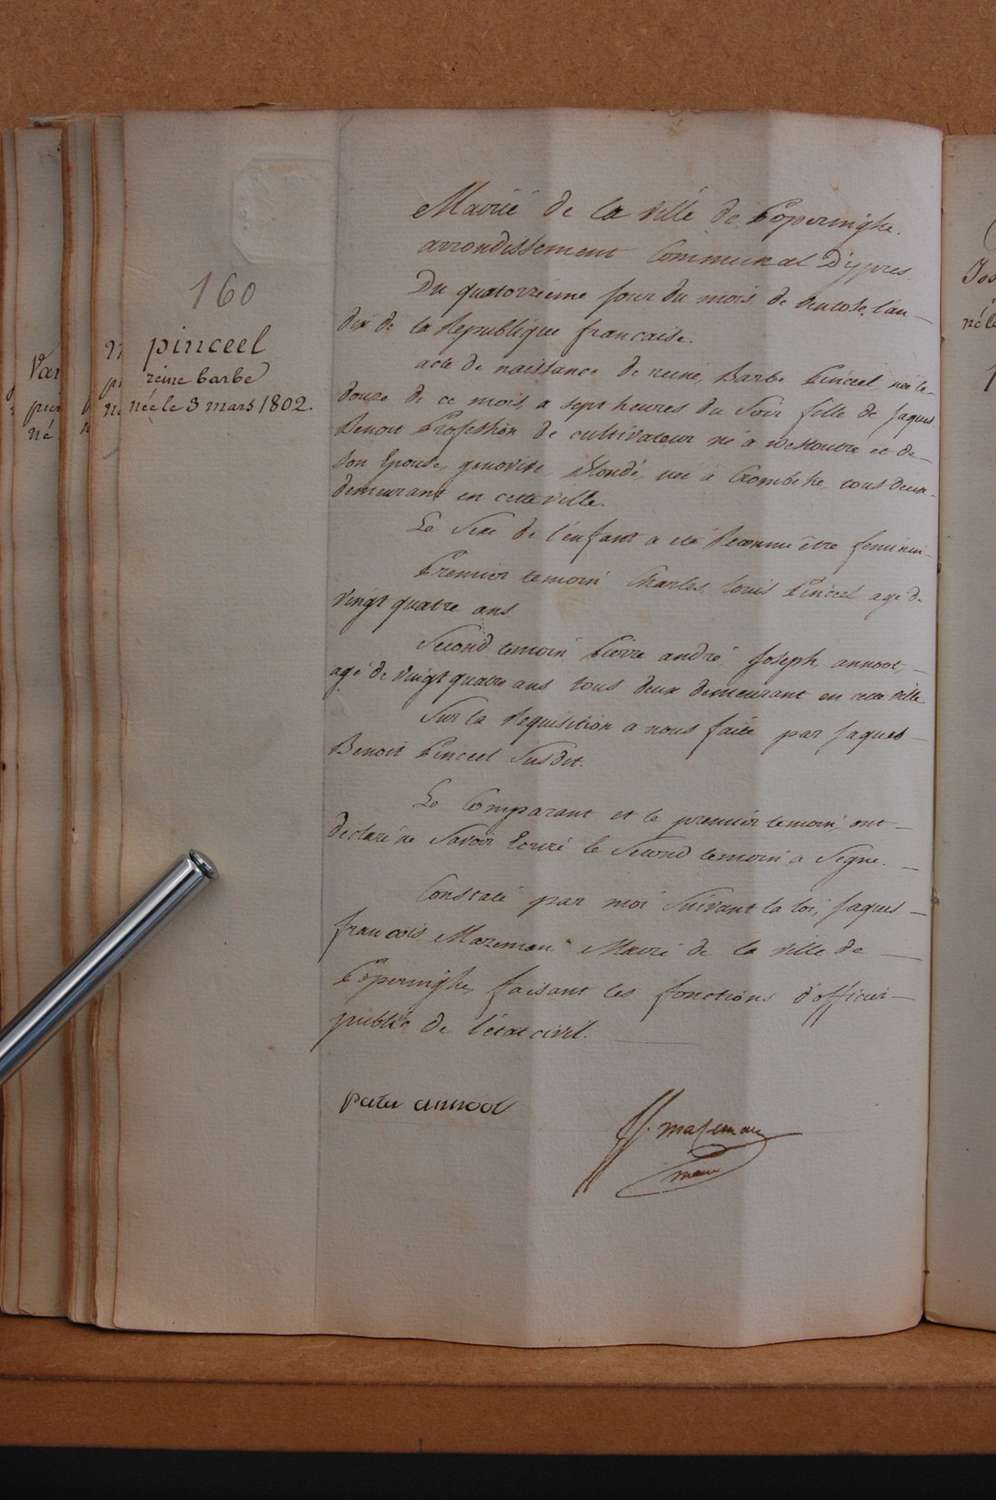 160
pinceel
reine barbe
née le 3 mars 1802.
Mairie de la ville de Poperinghe.
arrondissement Communal D'ypres
Du quatorzieme jour du mois de ventose, l'an
dix de la Republique francaise.
acte de naissance de reine Barbe Pinceel née le
douze de ce mois, a sept heures du Soir fille de Jaques
Benoit Profession de cultivateur né a westoutre et de
Son Epouse, genovive née a Crombeke tous deux
demeurant en cette ville.
Le Sexe de l'enfant a eté Reconnu être feminin
Premier temoin Charles Louis Pinceel agé de
vingt quatre ans
Second temoin Pierre andré Joseph annoot,
agé de vingt quatre ans tous deux demeurant en cette ville
Sur la Requisition a nous faite par Jaques
Benoit Pinceel Susdit.
Le Comparant et le premier temoin, ont
declaré ne Savoir Ecrire le Second temoin a Signe.
Constaté par moi Suivant la loi, Jaques
francois Mazeman Maire de la ville de
Poperinghe, faisant les fonctions d'officier
public de l'état civil.
peter annoot
JF. mazeman
maire
Var
né
Jos
né le